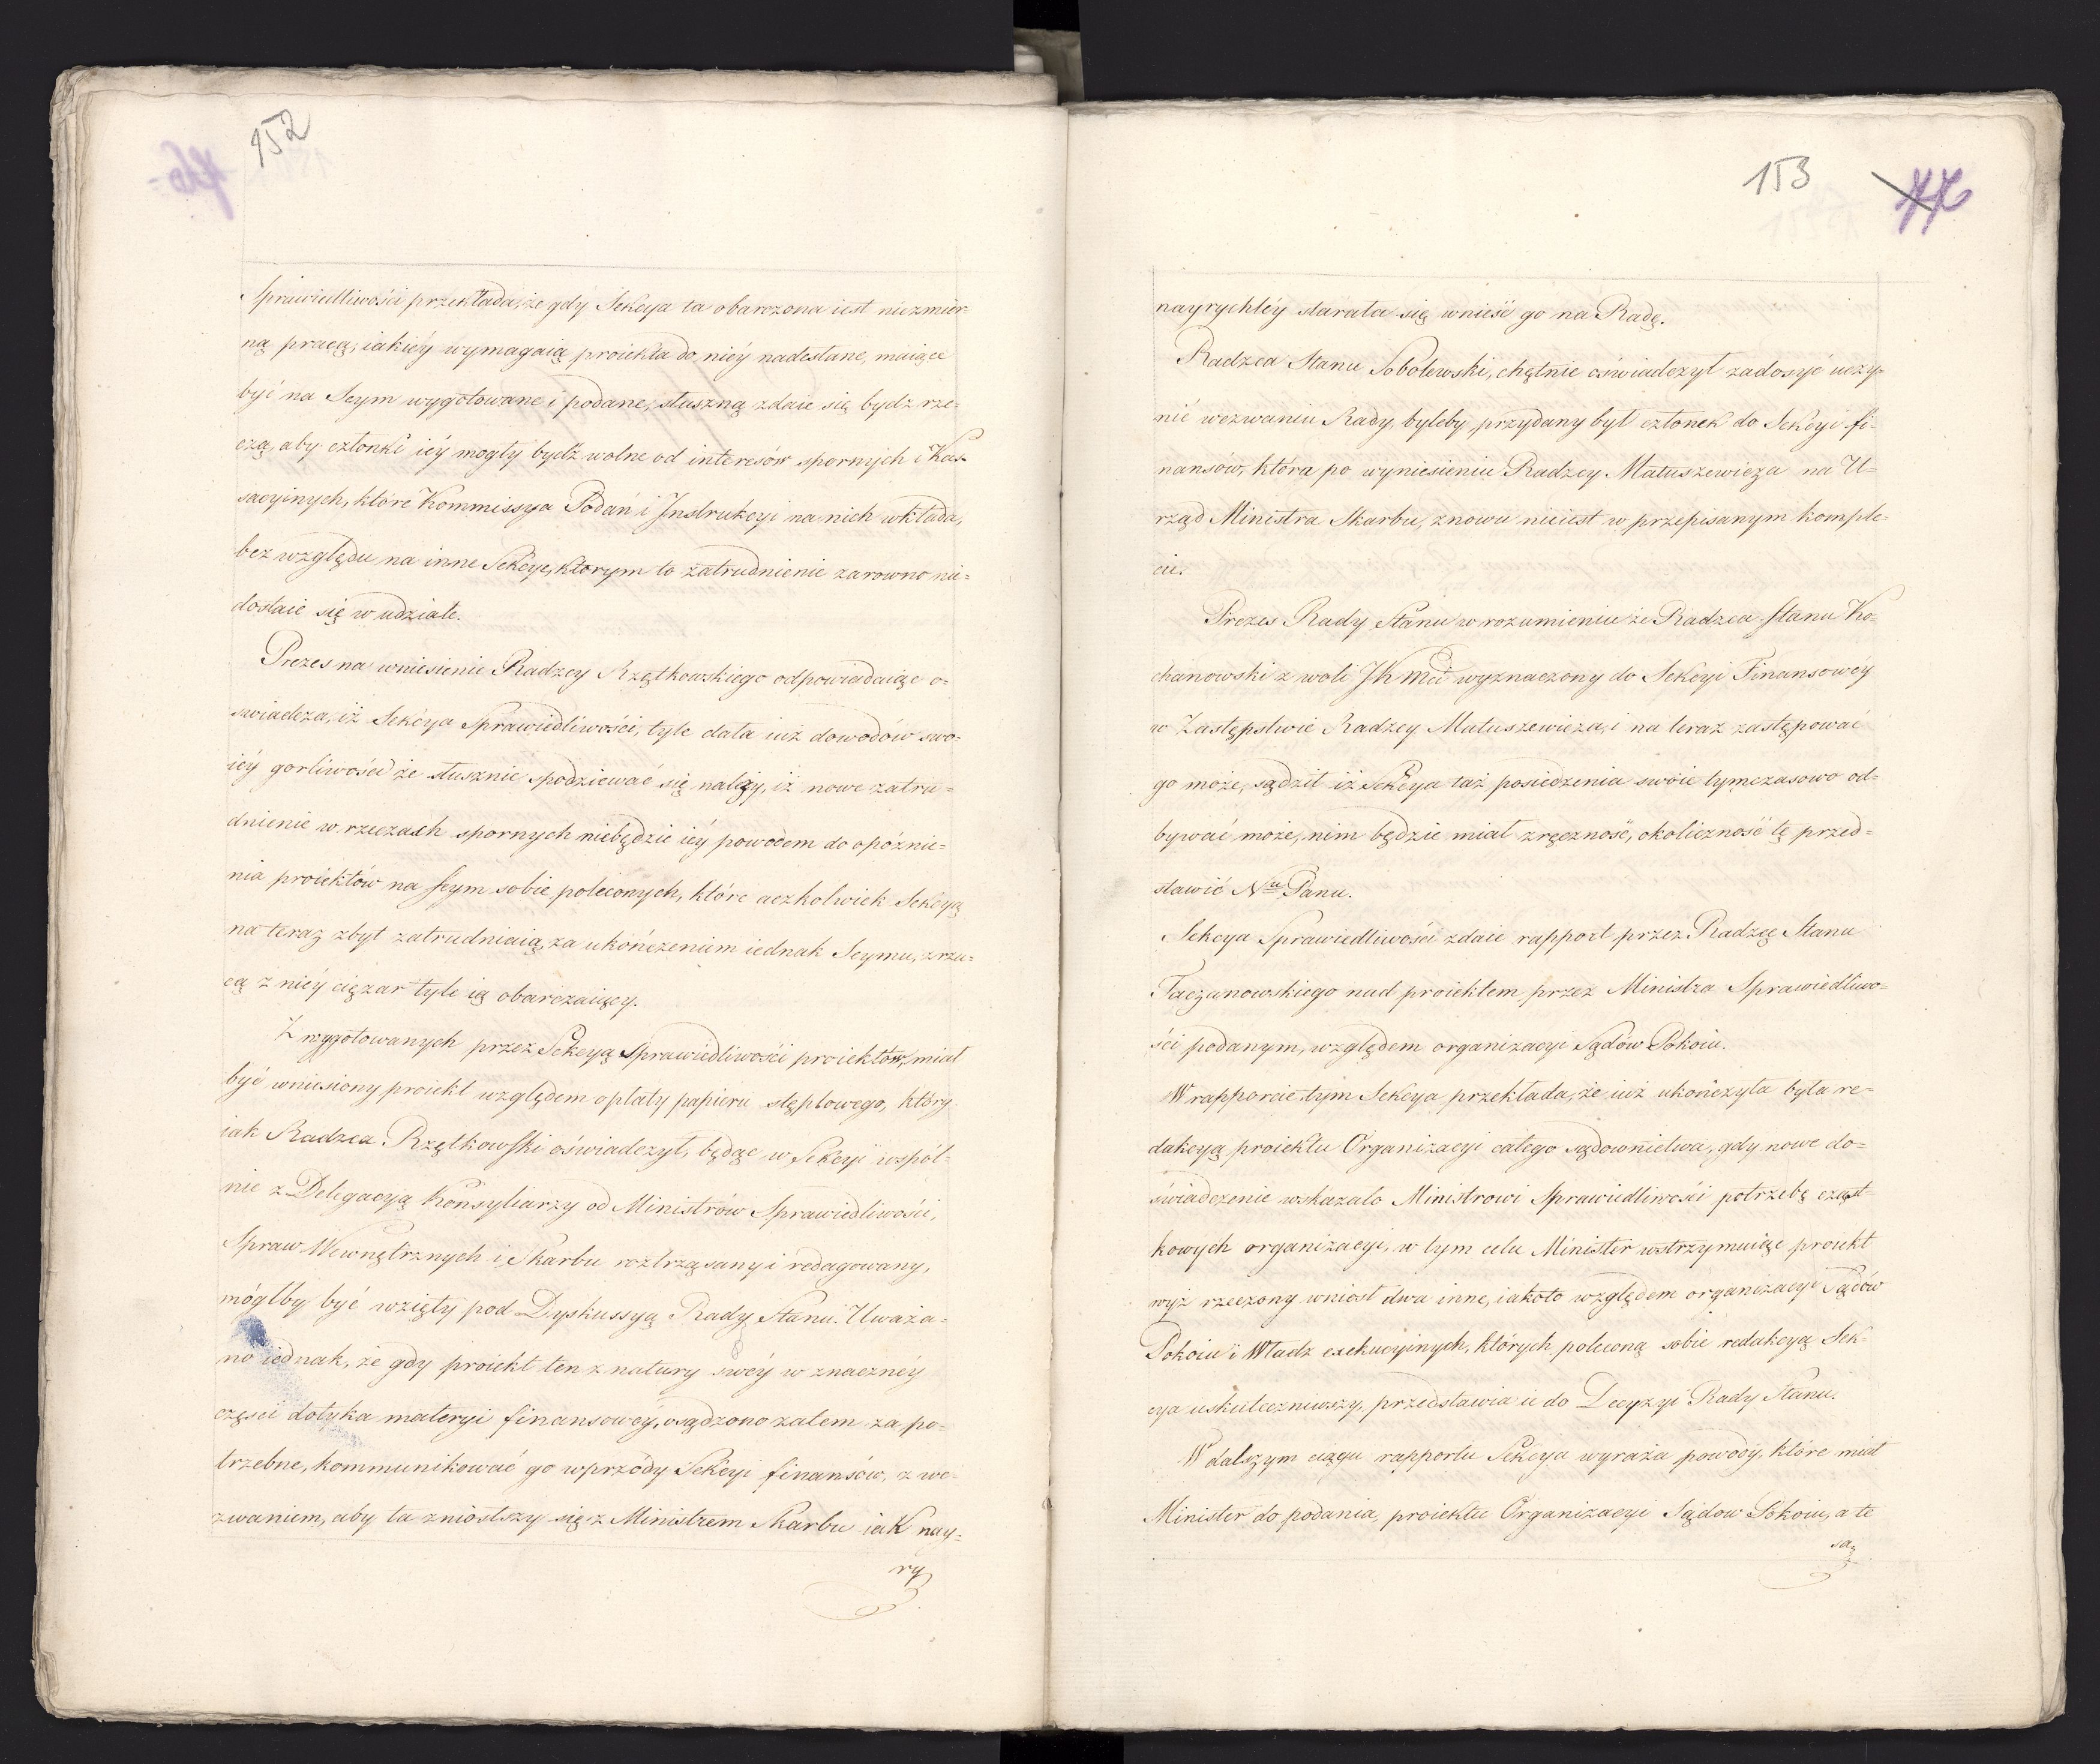 152
Sprawiedliwości przekłada, że gdy Sekcya ta obarczona iest niezmier-
ną pracą, iakiéy wymagaią proiekta do niéy nadesłane, maiące
być na Seym wygotowane i podane, słuszną zdaie się bydz rze-
czą, aby członki iéy mogły bydź wolne od interesów spornych i Kas-
sacyinych, które Kommissya Podań i Instrukcyi na nich wkłada,
bez względu na inne Sekcye, ktorym to zatrudnienie zarowno nie-
dostaie się w udziale.
Prezes na wniesienie Radzcy Rzętkowskiego odpowiadaiąc o-
swiadcza, iż Sekcya Sprawiedliwości, tyle dała iuż dowodów swo-
iéy gorliwości że słusznie spodziewać się należy, iż nowe zatru-
dnienie w rzeczach spornych niebędzie iéy powodem do opóznie-
nia proiektów na Seym sobie poleconych, które aczkolwiek Sekcyą
na teraz zbyt zatrudniaią, za ukończeniem iednak Seymu, zrzu-
cą z niéy ciężar tyle ią obarczaiący.
Z wygotowanych przez Sekcyą Sprawiedliwości proiektów, miał
być wniesiony proiekt względem opłaty papieru stęplowego, który
iak Radzca Rzętkowski oświadczył, będąc w Sekcyi wspól-
nie z Delegacyą Konsyliarzy od Ministrów Sprawiedliwości,
Spraw Wewnętrznych i Skarbu roztrząsany i redagowany,
mógłby być wzięty pod Dyskussyą Rady Stanu. Uważa-
no iednak, że gdy proiekt ten z natury swéy w znacznéy
części dotyka materyi finansowéy, osądzono zatem za po-
trzebne, kommunikować go wprzódy Sekcyi finansów, z we-
zwaniem, aby ta zniosłszy się z Ministrem Skarbu iak nay-
ry
153
nayrychléy starała się wnieść go na Radę.
Radzca Stanu Sobolewski, chętnie oświadczył zadosyć uczy-
nić wezwaniu Rady, byleby przydany był członek do Sekcyi fi-
nansów, która po wyniesieniu Radzcy Matuszewicza na U-
rząd Ministra Skarbu, znowu nieiest w przepisanym komple-
cie.
Prezes Rady Stanu w rozumieniu że Radzca Stanu Ko-
chanowski z woli JKMci wyznaczony do Sekcyi Finansowéy
w Zastępstwie Radzcy Matuszewicza, i na teraz zastępować
go może, sądził iż Sekcya taż posiedzenia swoie tymczasowo od-
bywać może, nim będzie miał zręczność, okoliczność tę przed-
stawić Nu Panu.
Sekcya Sprawiedliwości zdaie rapport przez Radzcę Stanu
Taczanowskiego nad proiektem przez Ministra Sprawiedliwo-
ści podanym, względem organizacyi Sądów Pokoiu.
W rapporcie tym Sekcya przekłada, że iuż ukończyła była re-
dakcyą proiektu Organizacyi całego sądownictwa, gdy nowe do-
świadczenie wskazało Ministrowi Sprawiedliwości potrzebę cząst-
kowych organizacyi, w tym celu Minister wstrzymuiąc proiekt
wyż rzeczony wniosł dwa inne, iakoto względem organizacyi Sądów
Pokoiu i Władz exekucyinych, których poleconą sobie redakcyą Sek-
cya uskuteczniwszy, przedstawia ie do Decyzyi Rady Stanu.
W dalszym ciągu rapportu Sekcya wyraża powody, które miał
Minister do podania, proiektu Organizacyi Sądow Pokoiu, a te
są